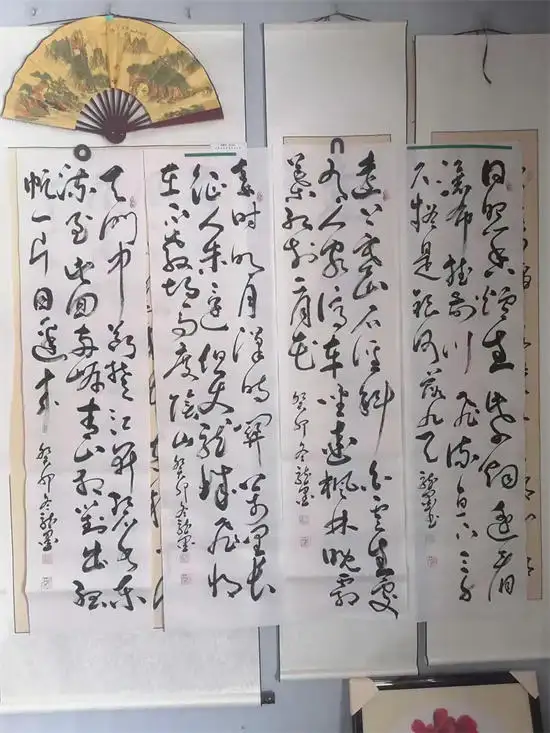 日照香炉生紫烟遥看
瀑布挂前川飞流直下三千
尺疑是银河落九天
龙墨书
远上寒山石径斜白云生处
有人家停车坐爱枫林晚霜
叶红于二月花
癸卯冬龙墨
秦时明月汉时关万里长
征人未还但使龙城飞将
在不教胡马度阴山
癸卯冬龙墨
天门中断楚江开碧水东
流至此回两岸青山相对出孤
帆一片日边来
癸卯冬龙墨